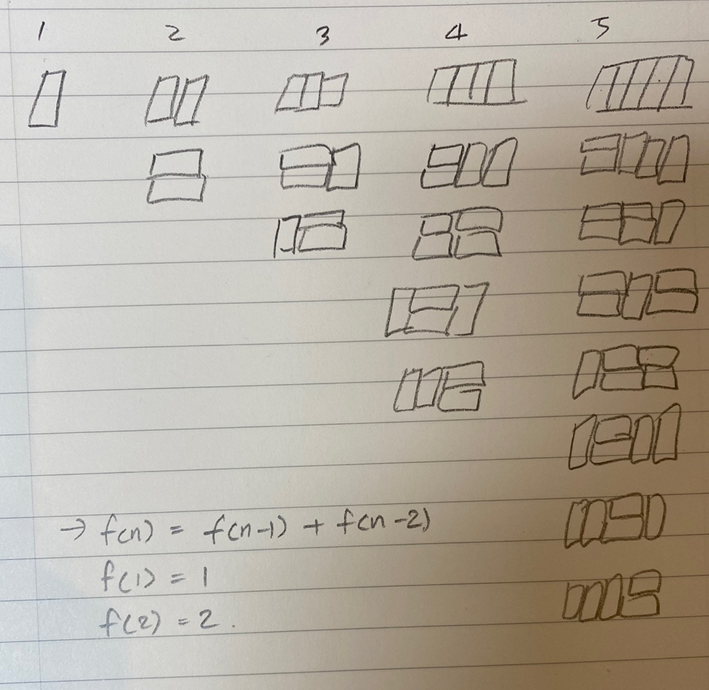 1 2 3 4 5
→ f(n) = f(n-1) + f(n-2)
f(1) = 1
f(2) = 2.